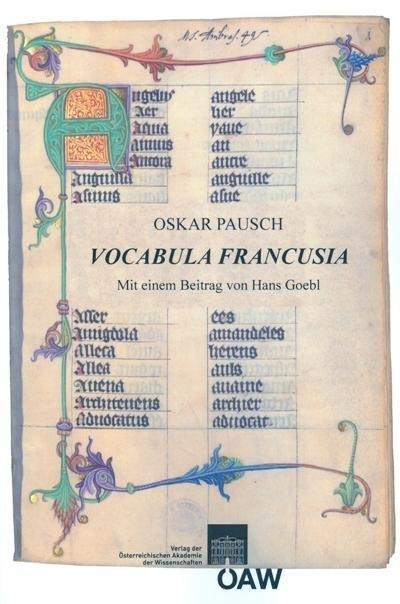 M.S. Ambras. 495
Angelus angele
Aer her
Aqua yaue
Annus an
Ancora ancre
Anguilla anguille
Asinus asne
OSKAR PAUSCH
VOCABULA FRANCUSIA
Mit einem Beitrag von Hans Goebl
Asser ees
Amigdola amandeles
Alleca herens
Allea auls
Auena auaine
Architenens archier
aduocatus aduocat
Verlag der
Österreichischen Akademie
der Wissenschaften
ÖAW